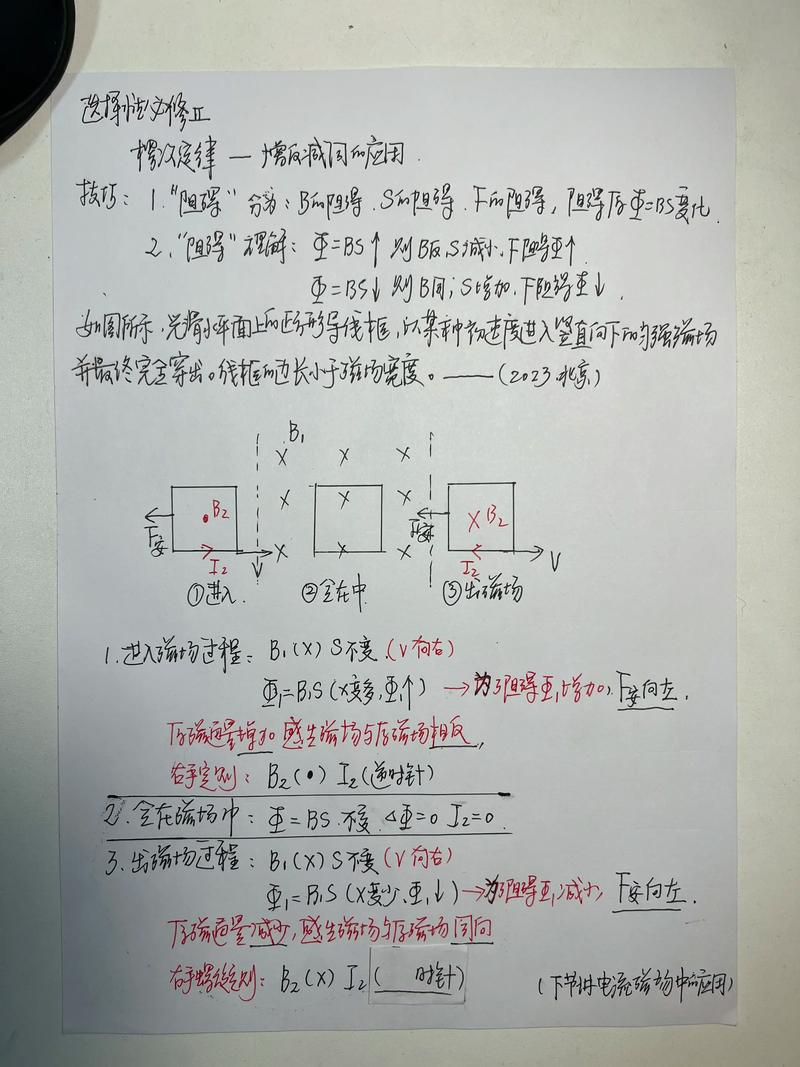 选择性必修Ⅱ
楞次定律 — 增反减同的应用.
技巧: 1. "阻碍" 分为: B的阻碍. S的阻碍. F的阻碍, 阻碍原Φ=BS变化.
2. "阻碍" 理解: Φ=BS↑ 则B反,S减小,F阻碍Φ↑
Φ=BS↓ 则B同;S增加.F阻碍Φ↓.
如图所示,光滑水平面上的正方形导线框,以某种初速度进入竖直向下的匀强磁场
并最终完全穿出。线框的边长小于磁场宽度。——(2023.北京)
B₁
× × ×
× × ×
× ×  ×
·B₂
×B₂
F安
F安
I₂
V
I₂
V
①进入.
②全在中
③出磁场
1.进入磁场过程: B₁(×) S不变.(V向右)
Φ₁=B₁S(×变多,Φ₁↑) →为了阻碍Φ₁增加. F安向左.
原磁通量增加 感生磁场与原磁场相反,
右手定则: B₂(•) I₂(逆时针)
2. 全在磁场中: Φ=BS.不变. △Φ=0 I₂=0.
3. 出磁场过程: B₁(×) S不变(V向右)
Φ₁=B₁S(×变少.Φ₁↓) →为了阻碍Φ₁减小, F安向左.
原磁通量减少,感生磁场与原磁场同向
右手螺旋定则: B₂(×) I₂( 时针)
(下节讲电流磁场中的应用)